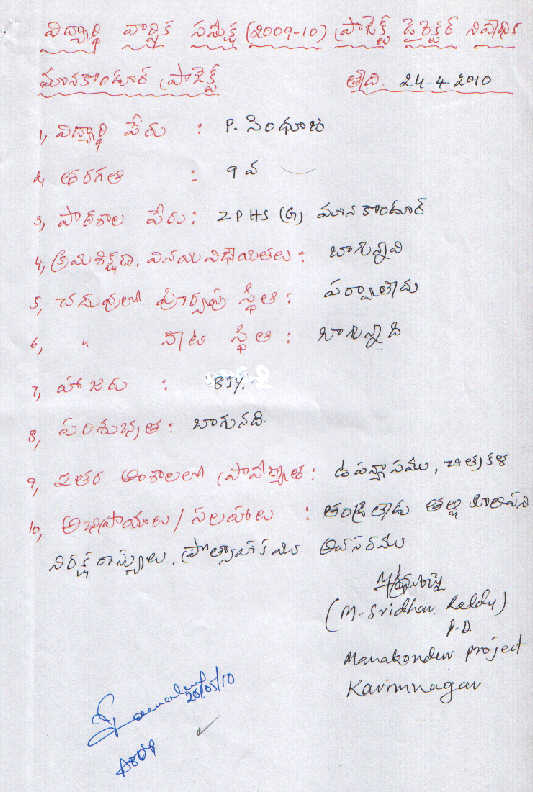 విద్యార్థి వార్షిక సమీక్ష (2009-10) ప్రాజెక్ట్ డైరెక్టర్ నివేదిక
మానకొండూర్ ప్రాజెక్ట్ తేది. 24-4-2010
1, విద్యార్థి పేరు : P. సింధూజ
2, తరగతి : 9 వ
3, పాఠశాల పేరు: ZPHS (G) మానకొండూర్
4, క్రమశిక్షణ, వినయ విధేయతలు: బాగున్నవి
5, చదువులో పూర్వపు స్థితి : పర్వాలేదు
6, " నేటి స్థితి : బాగున్నది
7, హాజరు : 81%.
8, పరిశుభ్రత : బాగునది.
9, ఇతర అంశాలలో ప్రావీణ్యత : ఉపన్యాసము, చిత్రకళ
10, అభిప్రాయాలు / సలహాలు : తండ్రి లేడు తల్లి
నిరక్షరాస్యులు. ప్రోత్సాహకము అవసరము
(M. Sridhar Reddy)
P.D
Manakondur project
Karimnagar
25/05/10